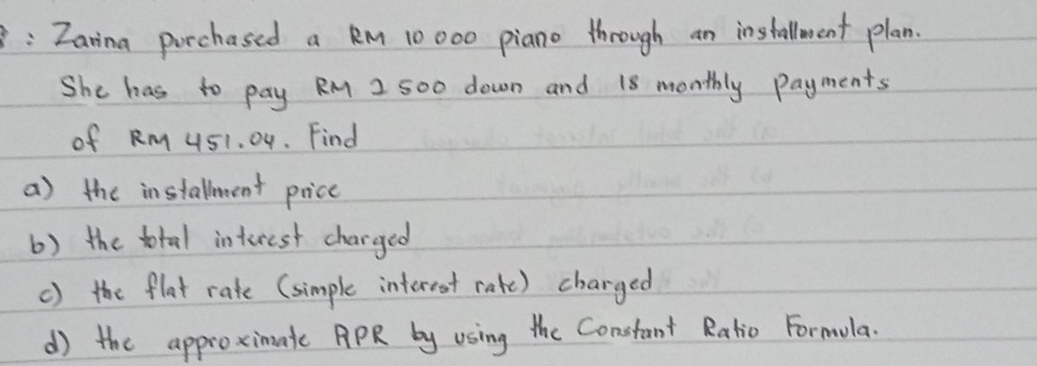 : Zarina purchased a RM 10 000 piano through an installment plan.
She has to pay RM 2 500 down and 18 monthly payments
of RM 451.04. Find
a) the installment price
b) the total interest charged
c) the flat rate (simple interest rate) charged
d) the approximate APR by using the Constant Ratio Formula.